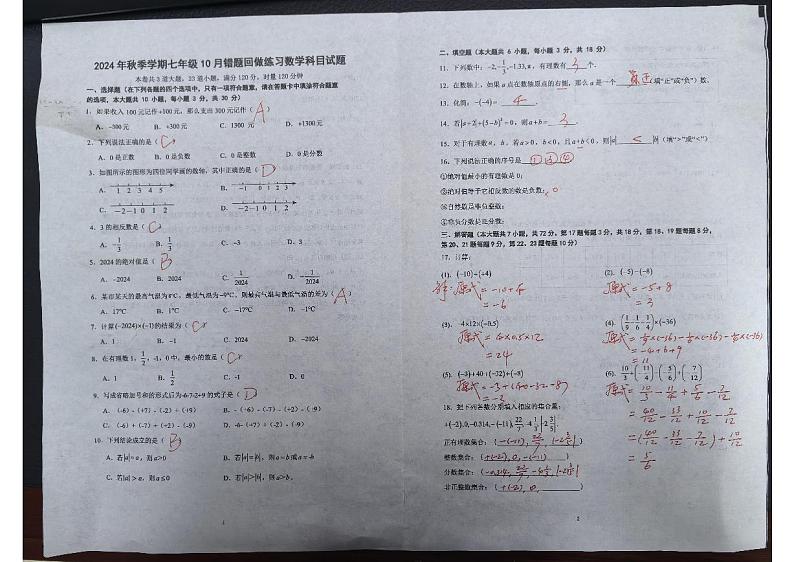 2024 年秋季学期七年级 10 月错题回做练习数学科目试题
本卷共 3 道大题，23 道小题，满分 120 分，时量 120 分钟
一、选择题（在下列各题的四个选项中，只有一项符合题意，请在答题卡中填涂符合题意
的选项，本大题共 10 小题，每小题 3 分，共 30 分）
1．如果收入 100 元记作+100 元，那么支出 300 元记作（ A ）
A．-300 元 B．+300 元 C．1300 元 D．+1300 元
2．下列说法正确的是（ C ）
A．0 是正数 B．0 是负数 C．0 是整数 D．0 是分数
3．如图所示的图形为四位同学画的数轴，其中正确的是（ D ）
A． 1 2 3 4 5 B． -1 0 1 2 3
C． -2 -1 0 1 2 D． -2 -1 0 1 2
4．3 的相反数是（ C ）
A．-1/3 B．1/3 C．-3 D．3
5．2024 的绝对值是（ B ）
A．-2024 B．2024 C．1/2024 D．-1/2024
6．某市某天的最高气温为8℃，最低气温为-9℃，则最高气温与最低气温的差为（ A ）
A．17℃ B．1℃ C．-17℃ D．-1℃
7．计算(-2024)×(-1)的结果为（ C ）
A．1 B．-1 C．2024 D．-2024
8．在有理数 1，1/2，-1，0 中，最小的数是（ C ）
A．1 B．1/2 C．-1 D．0
9．写成省略加号和的形式后为-6-7-2+9 的式子是（ D ）
A．(-6)-(+7)-(-2)+(+9) B．-(+6)-(-7)-(+2)-(+9)
C．(-6)+(-7)+(+2)-(-9) D．-6-(+7)+(-2)-(-9)
10．下列结论成立的是（ B ）
A．若|a|=a，则 a>0 B．若|a|=|b|，则 a=b或 a=-b
C．若|a|>a，则 a≤0 D．若|a|>|b|，则 a>b．
1
二、填空题（本大题共 6 小题，每小题 3 分，共 18 分）
11．下列数中：-2,-1/3,-1.33,π，有理数有 3 个．
12．在数轴上，如果点 a 点在数轴原点的右侧，那么 a 是一个（填"正"或"负"）数．
13．化简：-(-4)= 4 ．
14．若|a+2|+(5-b)²=0，则 a+b= 3 ．
15．对于有理数 a，b，若 a>0，b<0，且 a+b<0，则|a| < |b|（填">"或"<"）
16．下列说法正确的序号是 ①②④
①绝对值最小的有理数是 0；
②绝对值等于它相反数的数是负数；
③自然数是非负整数；
④非负分数是正分数；
三、解答题（本大题共 7 小题，共 72 分。第 17 题每题 3 分，共 18 分，第 18、19 题每题 8 分，
第 20、21 题每题 9 分，第 22、23 题每题 10 分）
17．计算：
(1)．(-10)+(+4) (2)．(-5)-(-8)
解：原式=-10+4 原式=-5+8
=-6 =3
(3)．-4×12×(-0.5) (4)．(1/9-1/6-1/4)×(-36)
原式=4×0.5×12
=24 =-4+6+9
=11
(5)．(-3)+40+(-32)+(-8) (6)．10/3+(-11/4)-(-5/6)+(-7/12)
原式=-3+(40-32-8) 原式=10/3-11/4+5/6-7/12
=-3 =40/12-33/12+10/12-7/12
=(40/12-33/12-7/12)+10/12
=5/6
18．把下列各数分别填入相应的集合里：
正有理数集合：（
整数集合：（ +(-2), 0, -(-11)
分数集合：（
非正整数集合：（ +(-2), 0,
2